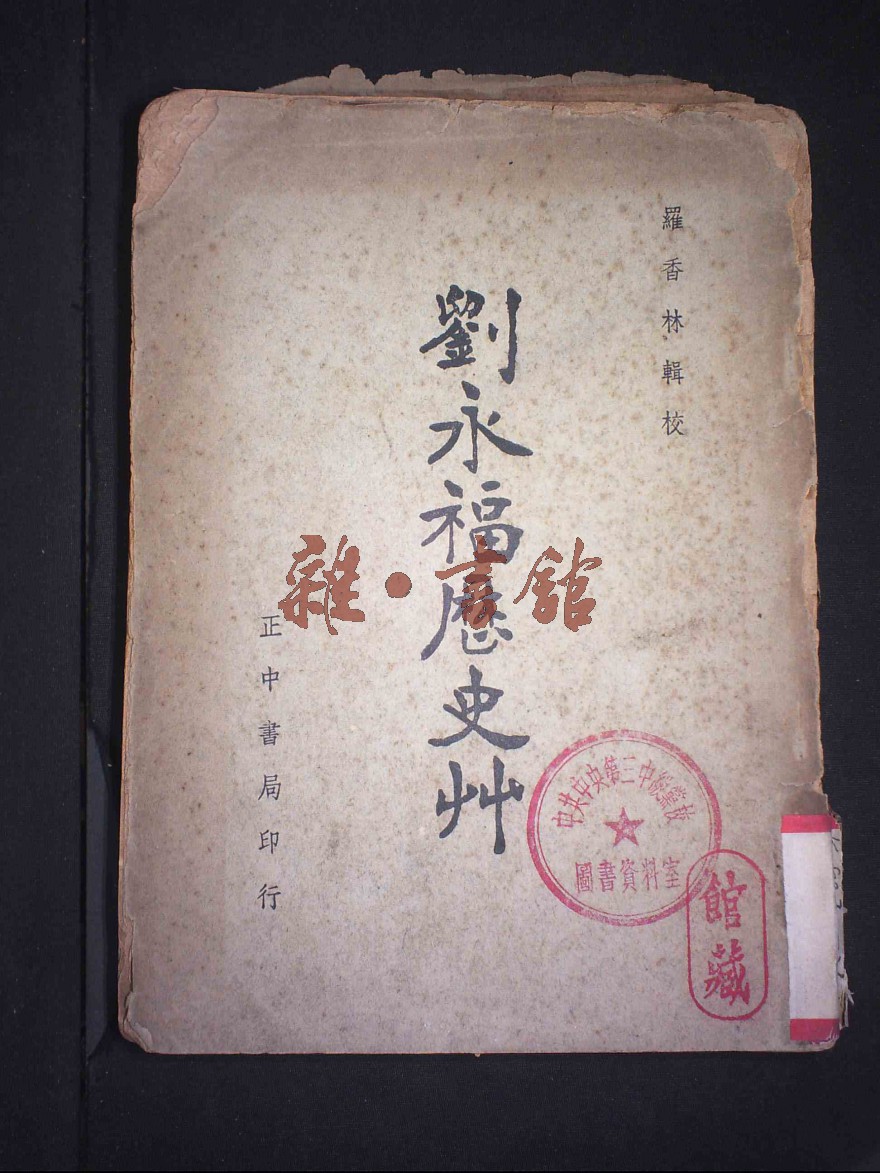 羅香林輯校
劉永福歷史艸
正中書局印行
雜·書館
中共中央第三中級黨校
圖書資料室
館藏